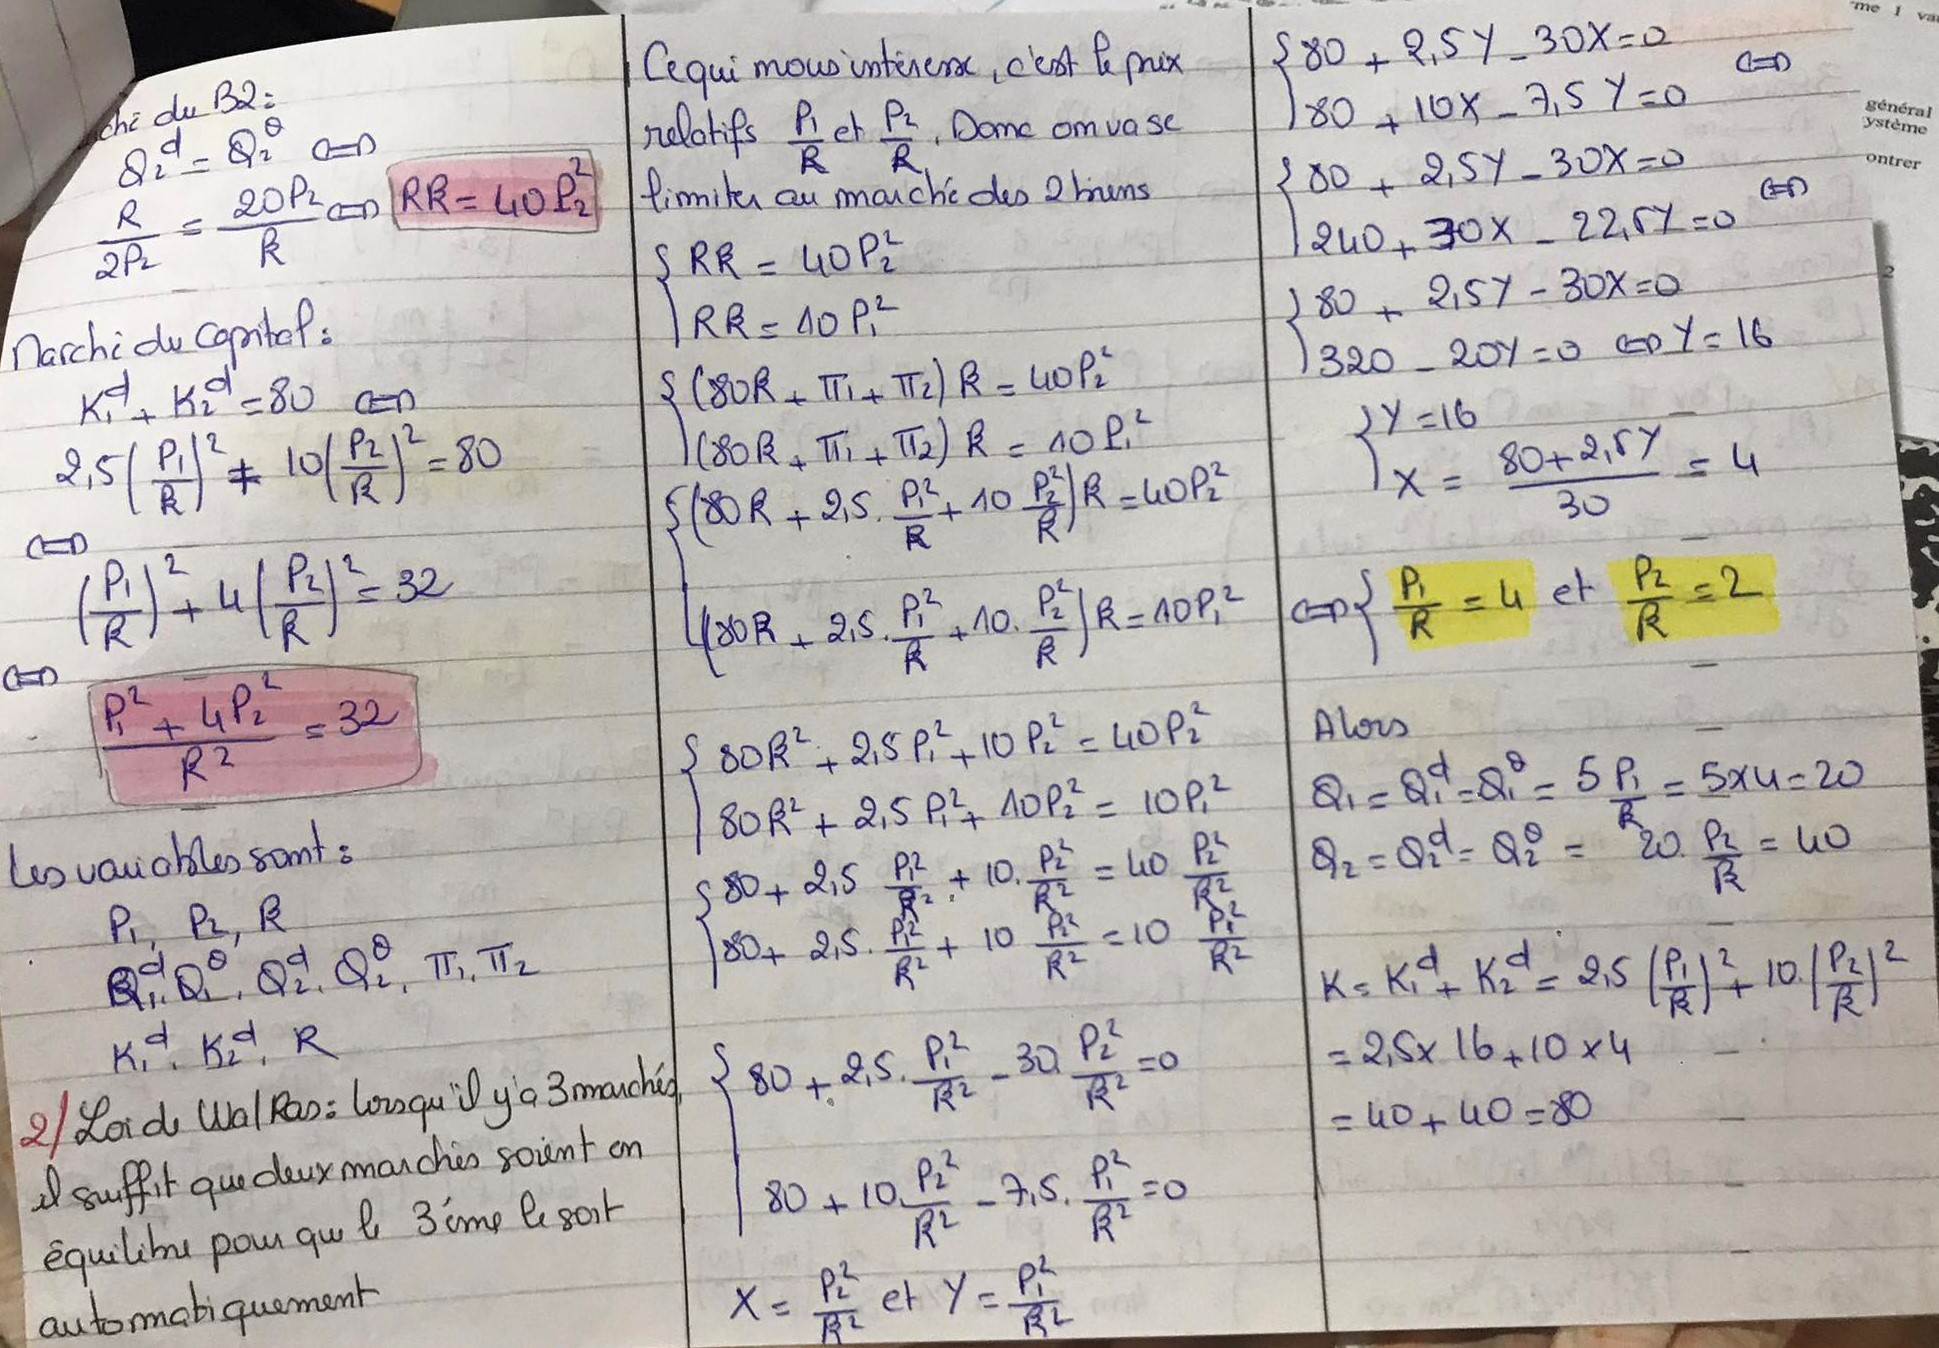 ché du B2:
Q₂ᵈ = Q₂⁰ ⇔
R/2P₂ = 20P₂/R ⇔ RR = 40P₂²
Marché du Capital:
K₁ᵈ + K₂ᵈ = 80 ⇔
2,5(P₁/R)² + 10(P₂/R)² = 80
⇔
(P₁/R)² + 4(P₂/R)² = 32
⇔
(P₁² + 4P₂²)/R² = 32
Les variables sont:
P₁, P₂, R
Q₁ᵈ, Q₁⁰, Q₂ᵈ, Q₂⁰, π₁, π₂
K₁ᵈ, K₂ᵈ, R
2/ Loi de WalRas: lorsqu'il y'a 3 marchés,
il suffit que deux marchés soient en
équilibre pour que le 3ème le soit
automatiquement
Ce qui nous intéresse, c'est le prix
relatifs P₁/R et P₂/R. Donc on va se
limiter au marché des 2 biens
{ RR = 40P₂²
RR = 10P₁²
{ (80R + π₁ + π₂) R = 40P₂²
(80R + π₁ + π₂) R = 10P₁²
{ (80R + 2,5. P₁²/R + 10 P₂²/R) R = 40P₂²
(80R + 2,5. P₁²/R + 10. P₂²/R) R = 10P₁²
{ 80R² + 2,5P₁² + 10P₂² = 40P₂²
80R² + 2,5P₁² + 10P₂² = 10P₁²
{ 80 + 2,5 P₁²/R² + 10. P₂²/R² = 40 P₂²/R²
80 + 2,5. P₁²/R² + 10 P₂²/R² = 10 P₁²/R²
{ 80 + 2,5. P₁²/R² - 30. P₂²/R² = 0
80 + 10. P₂²/R² - 7,5. P₁²/R² = 0
X = P₂²/R² et Y = P₁²/R²
{ 80 + 2,5Y - 30X = 0
80 + 10X - 7,5Y = 0 ⇔
{ 80 + 2,5Y - 30X = 0
240 + 30X - 22,5Y = 0 ⇔
{ 80 + 2,5Y - 30X = 0
320 - 20Y = 0 ⇔ Y = 16
{ Y = 16
X = (80 + 2,5Y)/30 = 4
⇔ { P₁/R = 4 et P₂/R = 2
Alors
Q₁ = Q₁ᵈ = Q₁⁰ = 5 P₁/R = 5×4 = 20
Q₂ = Q₂ᵈ = Q₂⁰ = 20. P₂/R = 40
K = K₁ᵈ + K₂ᵈ = 2,5 (P₁/R)² + 10. (P₂/R)²
= 2,5 × 16 + 10 × 4
= 40 + 40 = 80
me 1 va
général
ystème
ontrer
2